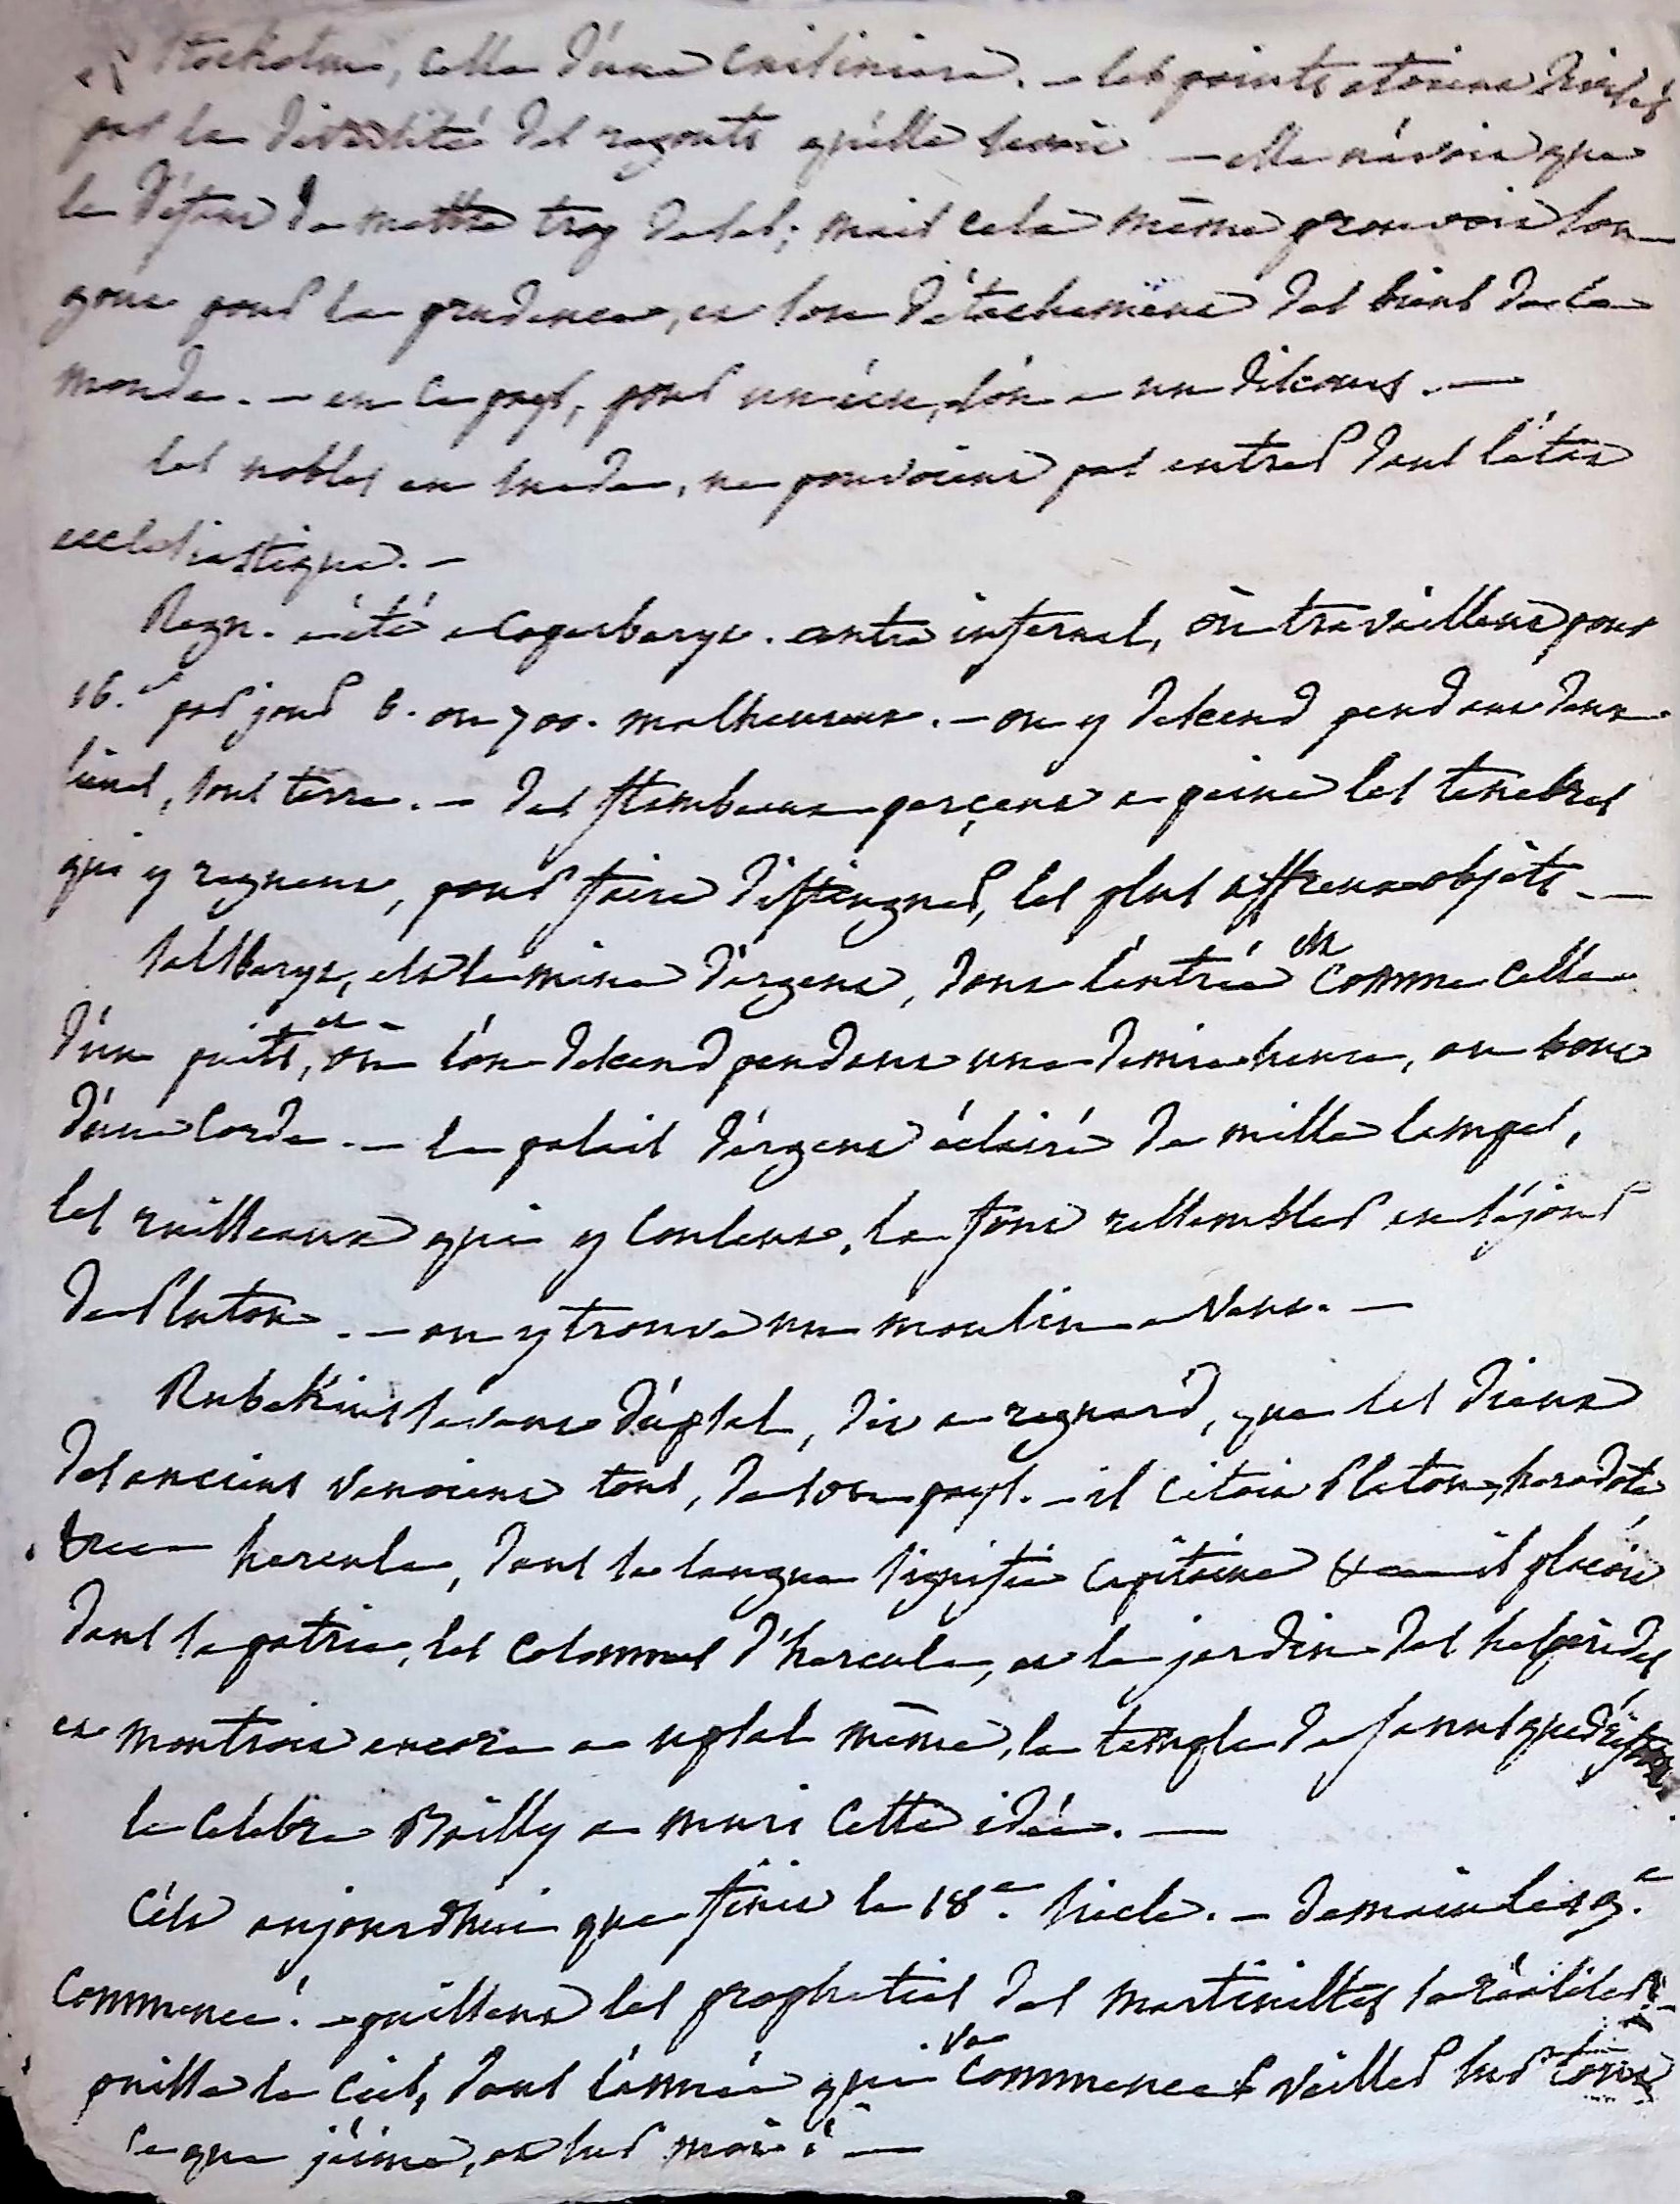 Stockholm, celle d'une cuisiniere. – les points etoient divisés
par la diversité des ragouts qu'elle servoit – elle n'avoit que
le défaut de mettre trop de sel; mais cela même prouvoit son
gout pour la prudence, et son détachement des biens de ce
monde. – en ce pays, pour un écu, l'on a un discours. –
les nobles en suede, ne pouvoient pas entrer dans l'état
ecclesiastique. –
Regn. a été a Coperberyt. antre infernal, où travaillent pour
16.s par jour 6. ou 700. malheureux. – on y descend pendant deux
lieues, sous terre. – des flambeaux percent a peine les tenebres
qui y regnent, pour faire distinguer, les plus affreux objets. –
Salsberyt, est la mine d'argent, dont l'entrée est comme celle
d'un puits, et où l'on descend pendant une demie heure, au bout
d'une corde. – le palais d'argent éclairé de mille lampes,
les ruisseaux qui y coulent, le font ressembler au séjour
de Pluton. – on y trouve un moulin a vent. –
Rubekius savant d'upsal, dit a regnard, que les dieux
des anciens venoient tous, de son pays. – il citoit Platon, herodote
&c. hercule, dans sa langue signifie capitaine &c. il plaçoit
dans sa patrie, les colonnes d'hercule, et le jardin des hesperides
et montroit encore a upsal même, le temple de Janus
le celebre Bailly a muri cette idée. –
C'est aujourdhui que finit le 18.e siecle. – demain le 19.e
commence. – puissent les propheties des martinistes se réaliser! –
puisse le ciel, dans l'année qui va commencer veiller sur tout
ce que j'aime, et sur moi! –